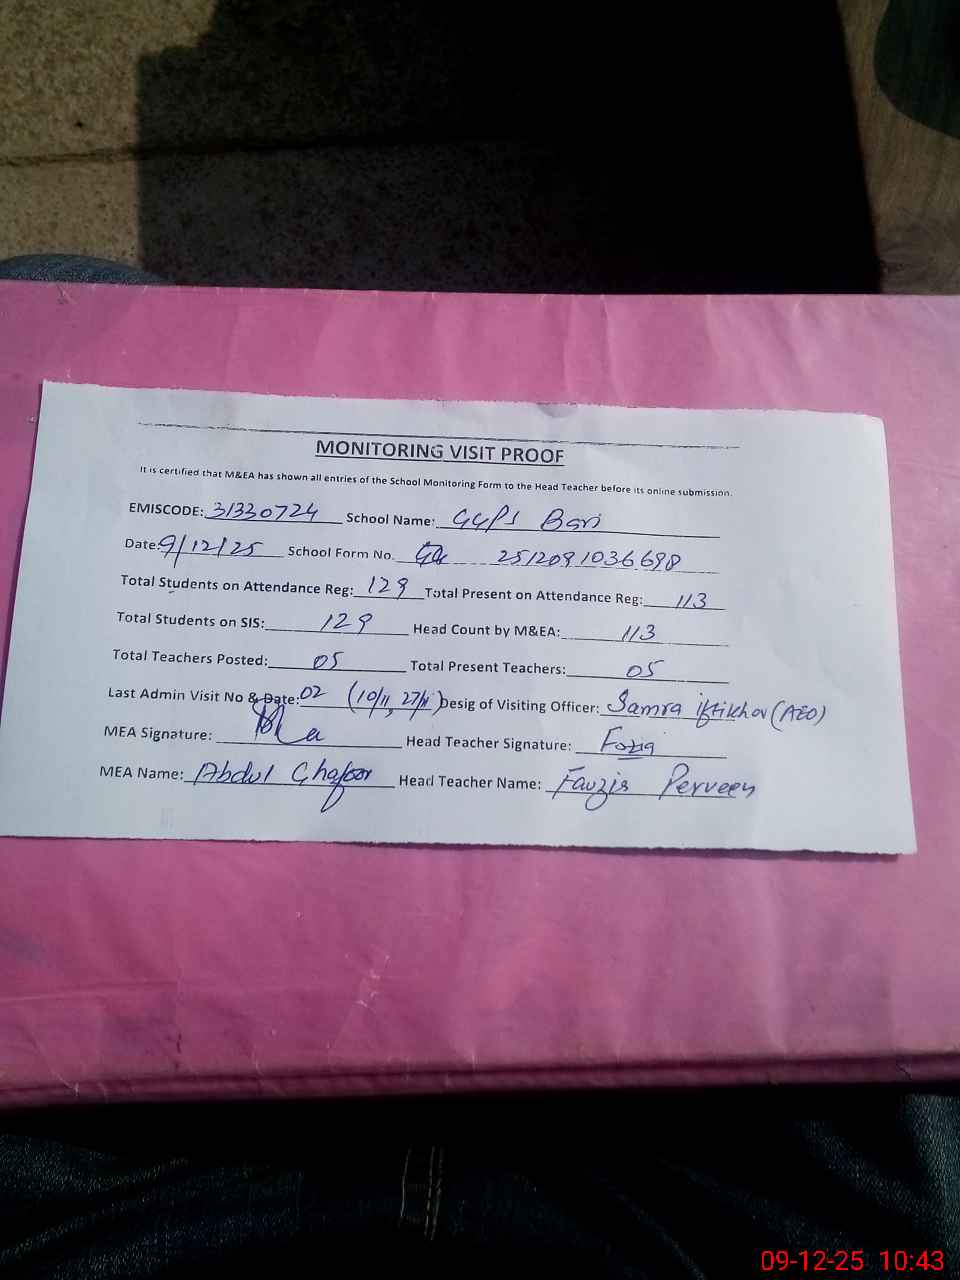 MONITORING VISIT PROOF
It is certified that M&EA has shown all entries of the School Monitoring Form to the Head Teacher before its online submission.
EMISCODE: 31330724 School Name: GGPS Bari
Date: 9/12/25 School Form No. 2512091036698
Total Students on Attendance Reg: 129 Total Present on Attendance Reg: 113
Total Students on SIS: 129 Head Count by M&EA: 113
Total Teachers Posted: 05 Total Present Teachers: 05
Last Admin Visit No & Date: 02 (10/11, 27/11) Desig of Visiting Officer: Samra iftikhar (AEO)
MEA Signature: Head Teacher Signature: Fozia
MEA Name: Abdul Ghafoor Head Teacher Name: Fauzia Perveen
09-12-25 10:43